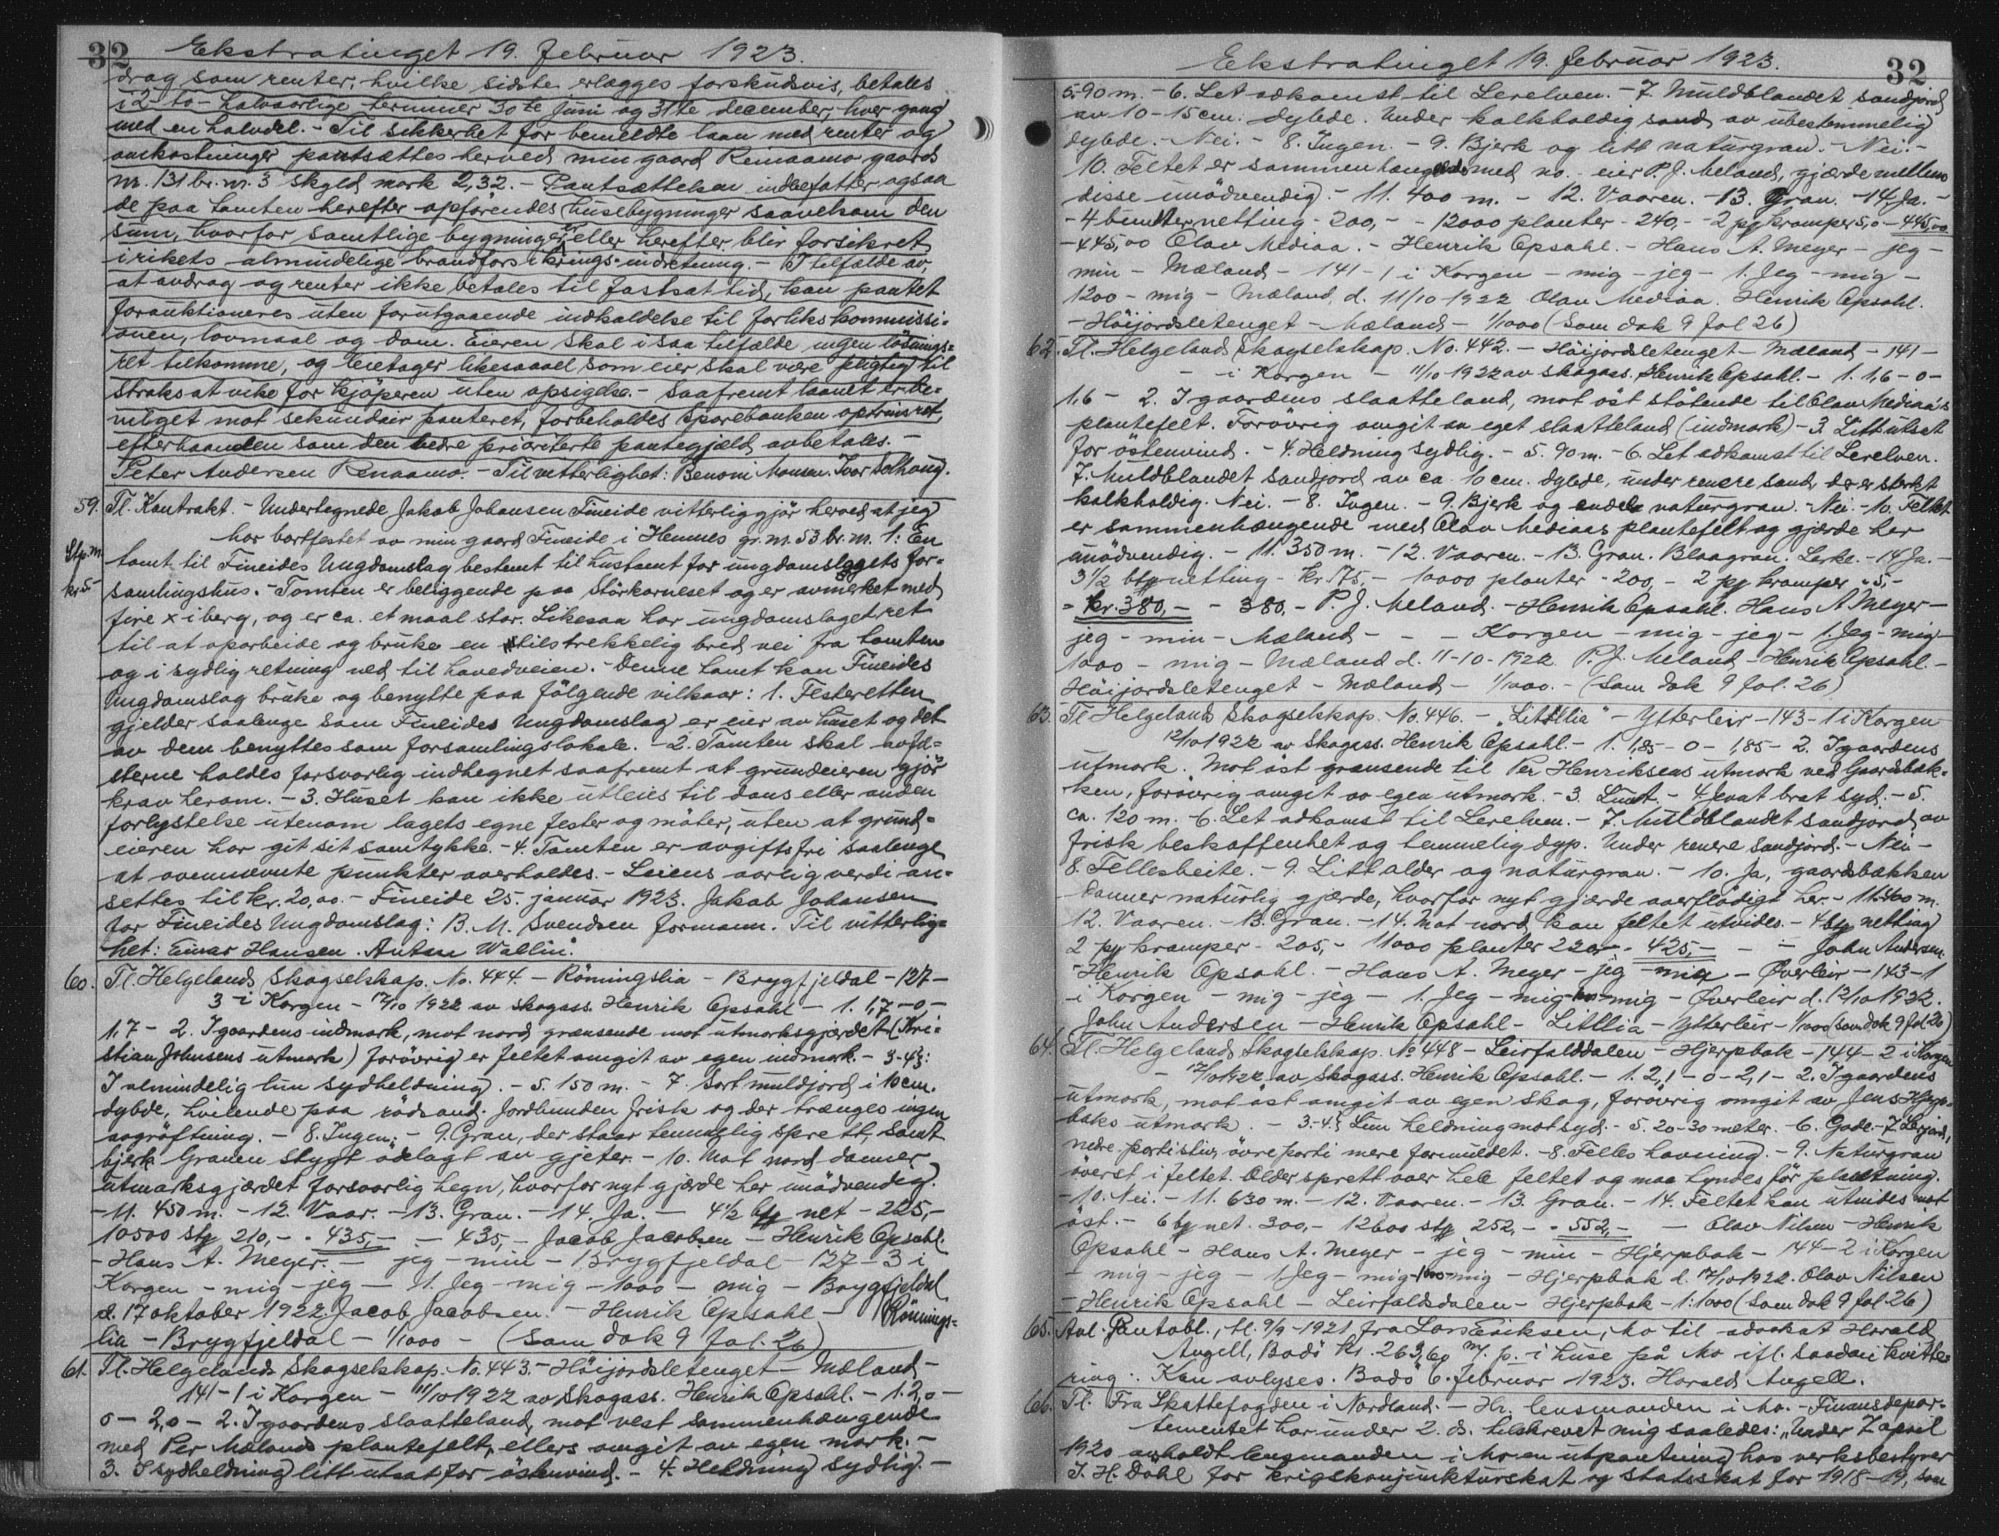 32 Ekstratinget 19. februar 1923.
drag som renter, hvilke sidste erlægges forskudsvis, betales
i 2 - to - halvaarlige terminer 30te juni og 31te december, hver gang
med en halvdel. - Til sikkerhet for bemeldte laan med renter og
omkostninger pantsættes herved min gaard Renaamo gaards
nr. 131 br. nr. 3 skyld mark 2,32. - Pantsættelsen indbefatter ogsaa
de paa tomten herefter opførendes husebygninger saavelsom den
sum, hvorfor samtlige bygninger er eller herefter blir forsikret
i rikets almindelige brandforsikrings-indretning. - I tilfælde av,
at avdrag og renter ikke betales til fastsat tid, kan pantet
forauktioneres uten forutgaaende indkaldelse til forlikskommissi-
onen, lovmaal og dom. Eieren skal i saa tilfælde ingen løsnings-
ret tilkomme, og leietager likesaavel som eier skal være pligtig til
straks at vike for kjøperen uten opsigelse. - Saafremt laanet er be-
vilget mot sekundair panteret, forbeholdes Sparebanken oprinsret,
efterhaanden som den bedre prioriterte pantegjeld avbetales. -
Peter Andersen Renaamo. - Til vitterlighet: Benoni Monsen. Ivar
59. Tl. Kontrakt. - Undertegnede Jakob Johansen Fineide vitterliggjør herved at jeg
har bortfestet av min gaard Fineide i Hemnes gr. nr. 53 br. nr. 1: En
Stp. m. tomt til Fineides Ungdomslag bestemt til hustomt for ungdomslagets for-
kr 5- samlingshus. - Tomten er beliggende paa Storkorneset og er avmerket med
fire x i berg, og er ca. et maal stor. Likesaa har ungdomslaget ret
til at oparbeide og bruke en tilstrekkelig bred vei fra tomten
og i sydlig retning ned til hovedveien. - Denne tomt kan Fineides
Ungdomslag bruke og benytte paa følgende vilkaar: 1. Festeretten
gjelder saalenge som Fineides Ungdomslag er eier av huset og det
av dem benyttes som forsamlingslokale. - 2. Tomten skal av fæ-
sterne holdes forsvarlig indhegnet saafremt at grundeieren gjør
krav herom. - 3. Huset kan ikke utleies til dans eller anden
forlystelse utenom lagets egne fester og møter, uten at grund-
eieren har git sit samtykke. - 4. Tomten er avgiftsfri saalenge
at ovennevnte punkter overholdes. - Leiens aarlig verdi an-
settes til kr. 20,00. - Fineide 25. januar 1923. Jakob Johansen
for Fineides Ungdomslag: B. M. Svendsen formann. Til vitterlig-
het: Einar Hansen. Anton Wallin.
60. Tl. Helgelands Skogselskap. No. 444. - Røningslia - Brygfjeldal - 127 -
3 - i Korgen - 17/10 1922 av skogass. Henrik Opsahl - 1. 1,7 - 0 -
1,7 - 2. I gaardens indmark, mot nord grænsende mot utmarksgjærdet (Kri-
stian Johnsens utmark) forøvrig er feltet omgit av egen indmark. - 3-4:
I almindelig lun sydheldning. - 5. 150 m. - 7. Sort muldjord i 10 cm.
dybde, hvilende paa rødsand. Jordbunden frisk og der trænges ingen
avgrøftning. - 8. Ingen. - 9. Gran, der staar temmelig spredt, samt
bjerk. Granen stygt ødelagt av gjeter. - 10. Mot nord danner
utmarksgjærdet forsvarlig hegn, hvorfor nyt gjærde her unødvendig.
- 11. 450 m. - 12. Vaar. - 13. Gran. - 14. Ja. - 4½ bt net - 225,-
10500 stp 210,- - 435,- - 435,- Jacob Jacobsen - Henrik Opsahl.
- Hans A. Meyer. - jeg - min - Brygfjeldal - 127 - 3 i
Korgen - mig - jeg - 1. Jeg - mig - 1000 - mig - Brygfjeldal
d. 17 oktober 1922. Jacob Jacobsen - Henrik Opsahl - Rønings-
lia - Brygfjeldal - 1/1000 - (Som dok 9 fol. 26)
61. Tl. Helgelands Skogselskap. No. 443 - Høijordsletenget - Mæland -
141 - 1 i Korgen - 11/10 1922 av skogass. Henrik Opsahl. - 1. 2,0 -
0 - 2,0 - 2. I gaardens slaatteland, mot vest sammenhængende
med Per Mælands plantefelt, ellers omgit av egen mark. -
3. I sydheldning litt utsat for østenvind. - 4. Heldning sydlig. -
Ekstratinget 19. februar 1923. 32
5-90 m. - 6. Let adkomst til Lerelven. - 7. Muldblandet sandjord
av 10-15 cm. dybde. Under kalkholdig sand av ubestemmelig
dybde. - Nei. - 8. Ingen. - 9. Bjerk og litt naturgran. - Nei. -
10. Feltet er sammenhængende med no. - eier P. J. Meland, gjærde mellem
disse unødvendig. - 11. 400 m. - 12. Vaaren. - 13. Gran. - 14. Ja. -
- 4 bunter netting - 200,- - 12000 planter - 240,- - 2 pf kramper 5,0 - 445,00
- 445,00 Olav Mediaa. - Henrik Opsahl. - Hans A. Meyer - jeg -
min - Mæland - 141 - 1 i Korgen - mig - jeg - 1. Jeg - mig -
1200 - mig - Mæland, d. 11/10 - 1922 Olav Mediaa. Henrik Opsahl.
- Høijordsletenget - Mæland - 1/1000 (Som dok 9 fol 26)
62. Tl. Helgelands Skogselskap. No. 442. - Høijordsletenget - Mæland - 141 -
- i Korgen - 11/10 1922 av skogass. Henrik Opsahl. - 1. 1,6 - 0 -
1,6 - 2. I gaardens slaatteland, mot øst støtende til Olav Mediaa's
plantefelt. Forøvrig omgit av eget slaatteland (indmark) - 3. Litt utsat
for østenvind. - 4. Heldning sydlig. - 5. 90 m. - 6. Let adkomst til Lerelven.
7. Muldblandet sandjord av ca. 10 cm. dybde, under renere sand, der er sterkt
kalkholdig. Nei. - 8. Ingen. - 9. Bjerk og endel naturgran. - Nei - 10. Feltet
er sammenhængende med Olav Mediaas plantefelt og gjærde her
unødvendig. - 11. 350 m. - 12. Vaaren. - 13. Gran. Blaagran. Lerke. - 14. Ja. -
3½ bt netting - kr. 175,- - 10000 planter - 200,- - 2 pf kramper - 5,-
- kr. 380,- - 380,- P. J. Meland. - Henrik Opsahl. Hans A. Meyer -
jeg - min - Mæland - - - Korgen - mig - jeg - 1. Jeg - mig -
1000 - mig - Mæland d. 11-10-1922 P. J. Meland - Henrik Opsahl -
Høijordsletenget - Mæland - 1/1000. - (Som dok 9 fol. 26)
63. Tl. Helgelands Skogselskap. No. 446. - "Littllia" - Ytterleir - 143 - 1 i Korgen
12/10 1922 av Skogass. Henrik Opsahl. - 1. 1,85 - 0 - 1,85 - 2. I gaardens
utmark. Mot øst grænsende til Per Henriksens utmark ved Gaardsbæk-
ken, forøvrig omgit av egen utmark. - 3. Lunt. - 4. Jevnt brat syd. - 5.
ca. 120 m. - 6. Let adkomst til Lerelven. - 7. Muldblandet sandjord av
frisk beskaffenhet og temmelig dyp. Under renere sandjord. - Nei -
8. Fellesbeite. - 9. Litt older og naturgran. - 10. Ja, gaardsbækken
danner naturlig gjærde, hvorfor nyt gjærde overflødigt her. - 11. 400 m.
12. Vaaren. - 13. Gran. - 14. Mot nord kan feltet utvides. - 4 bt netting
2 pf kramper - 205,- 11000 planter 220,- - 425,- - - John Andersen
- Henrik Opsahl. - Hans A. Meyer - jeg - min - Øverleir - 143 - 1
- i Korgen - mig - jeg - 1. Jeg - mig - 1000 - mig - Øverleir d. 12/10 1922.
John Andersen - Henrik Opsahl - Littllia - Ytterleir - 1/1000 (som dok 9 fol 26)
64. Tl. Helgelands Skogselskap. No 448 - Leirfalddalen - Hjerpbak - 144 - 2 i Korgen
- 17/10 1922 av Skogass. Henrik Opsahl. - 1. 2,1 - 0 - 2,1 - 2. I gaardens
utmark, mot øst omgit av egen skog, forøvrig omgit av Jens Hjerp-
baks utmark. - 3.-4. Lun heldning mot syd. - 5. 20-30 meter. - 6. Gode. - 7. Lerjord,
nedre parti stiv, øvre parti mere formuldet. - 8. Felles havning. - 9. Naturgran
øverst i feltet. Older spredt over hele feltet og maa tyndes før plantning.
- 10. Nei. - 11. 630 m. - 12. Vaaren. - 13. Gran. - 14. Feltet kan utvides mot
øst. - 6 bt net. 300,- 12600 stp 252,- - 552,- - Olav Nilsen - Henrik
Opsahl - Hans A. Meyer - jeg - min - Hjerpbak - 144 - 2 i Korgen
- mig - jeg - 1. Jeg - mig - 1000 mig - Hjerpbak d. 17/10 1922. Olav Nilsen
- Henrik Opsahl - Leirfaldsdalen - Hjerpbak - 1:1000 (Som dok 9 fol. 26)
65. Avl. Pantobl., tl. 9/9 - 1921 fra Lars Eriksen, Mo til advokat Harald
Angell, Bodø kr. 263,60 m/ p. i huse på Mo ifl. saadan kvitte-
ring: Kan avlyses. Bodø 6. februar 1923. Harald Angell.
66. Tl. Fra Skattefogden i Nordland. - Hr. lensmanden i Mo. - Finansdepar-
tementet har under 2. ds. tilskrevet mig saaledes: "Under 7 april
1920 avholdt lensmanden i Mo en utpantning hos verksbestyrer
J. H. Dahl for krigskonjunkturskat og statsskat for 1918-19, som